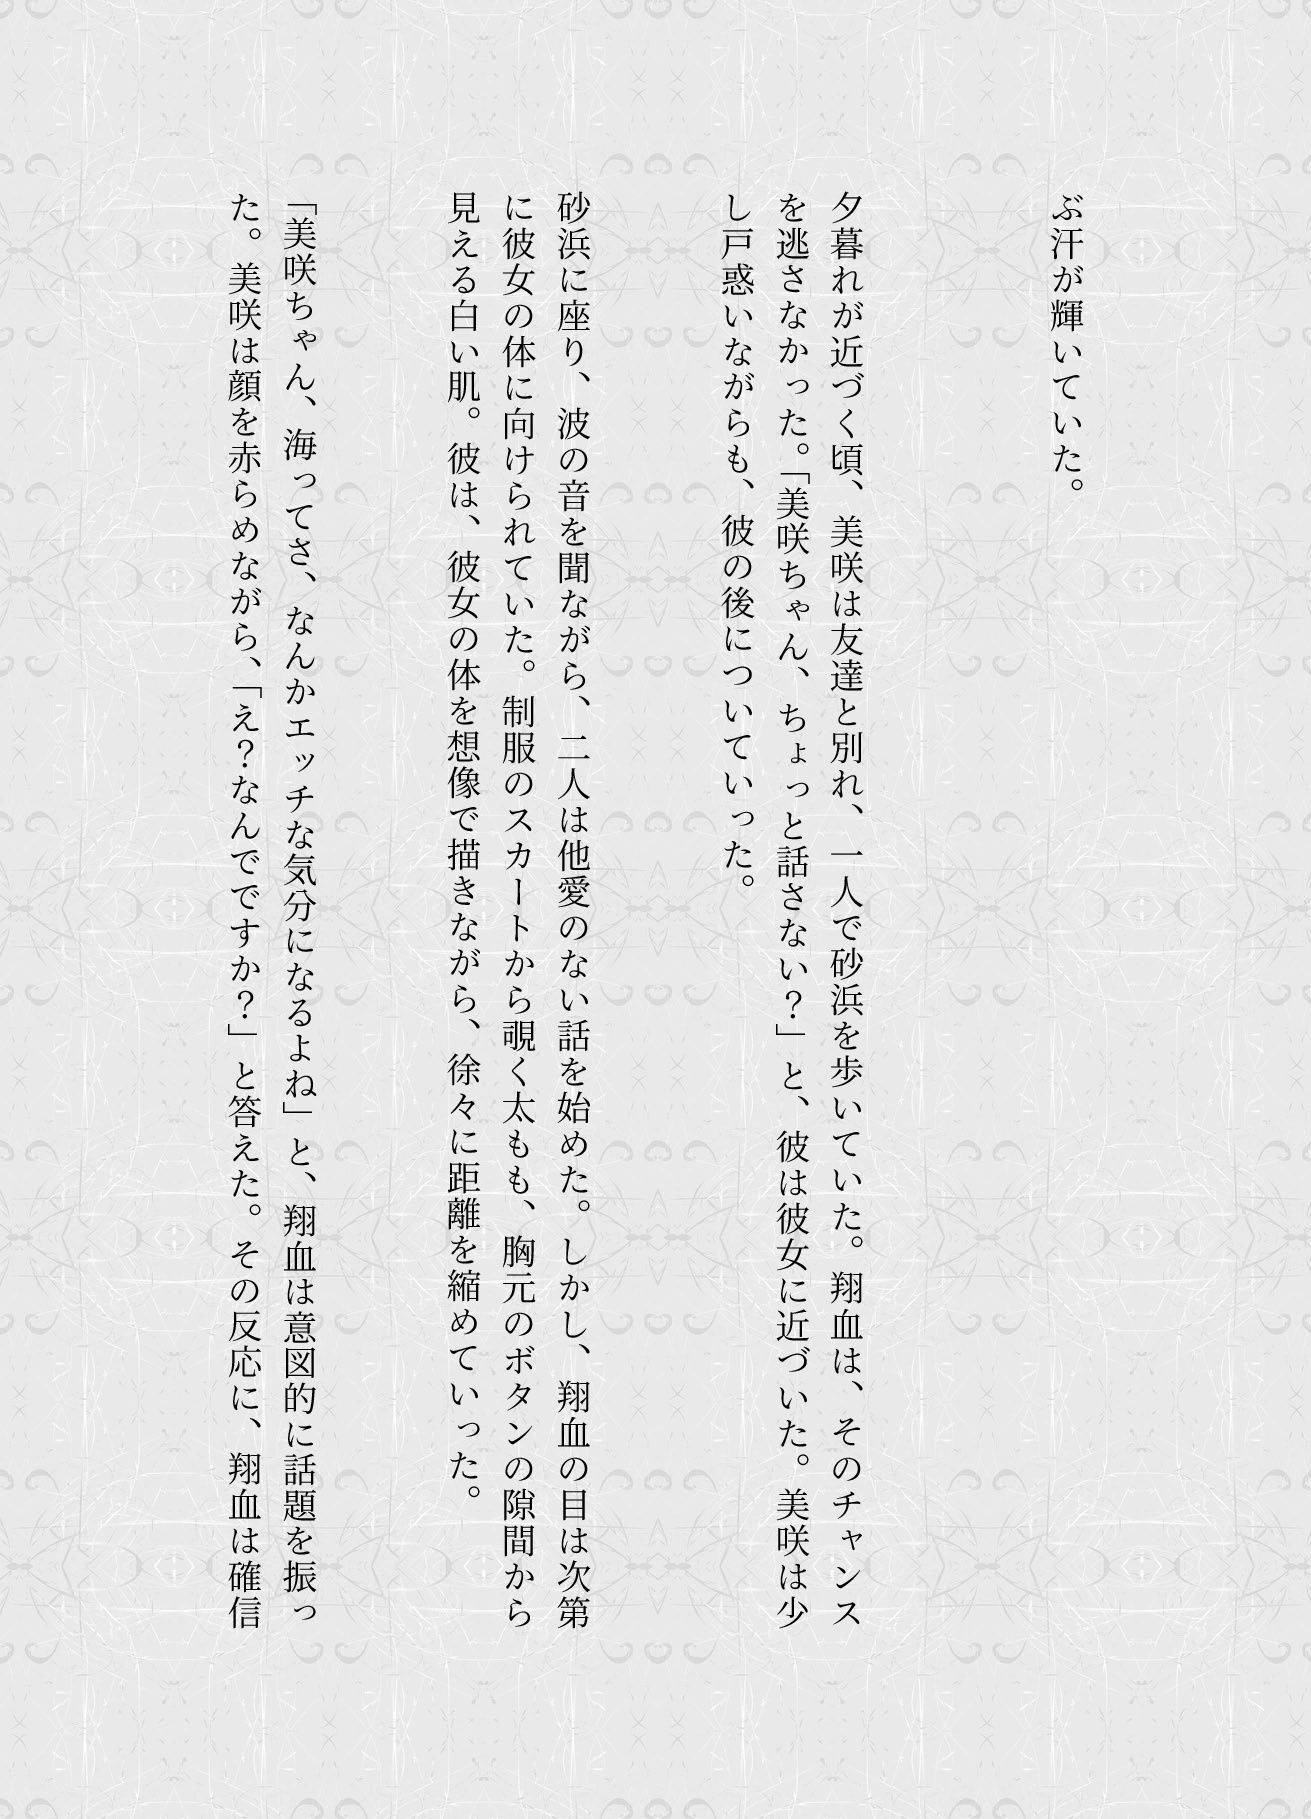 ぶ汗が輝いていた。
夕暮れが近づく頃、美咲は友達と別れ、一人で砂浜を歩いていた。翔血は、そのチャンス
を逃さなかった。「美咲ちゃん、ちょっと話さない？」と、彼は彼女に近づいた。美咲は少
し戸惑いながらも、彼の後についていった。
砂浜に座り、波の音を聞ながら、二人は他愛のない話を始めた。しかし、翔血の目は次第
に彼女の体に向けられていた。制服のスカートから覗く太もも、胸元のボタンの隙間から
見える白い肌。彼は、彼女の体を想像で描きながら、徐々に距離を縮めていった。
「美咲ちゃん、海ってさ、なんかエッチな気分になるよね」と、翔血は意図的に話題を振っ
た。美咲は顔を赤らめながら、「え？なんでですか？」と答えた。その反応に、翔血は確信